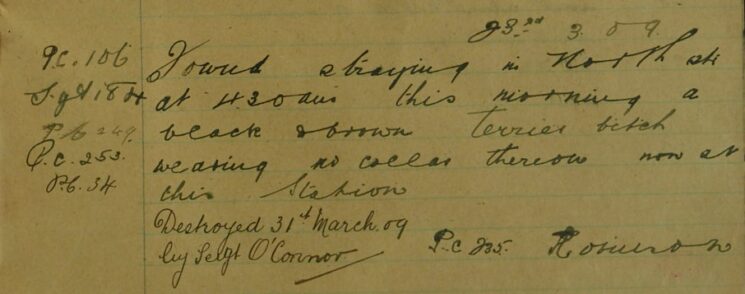 23rd 3. 09.
P.C. 106
Sgt 18 A
P.C 249.
P.C. 253.
P.C. 34
Found straying in North st
at 4.30am this morning a
black & brown terrier bitch
wearing no collar thereon now at
this Station
Destroyed 31st March. 09
by Sergt O'Connor
P.C 235. Robinson